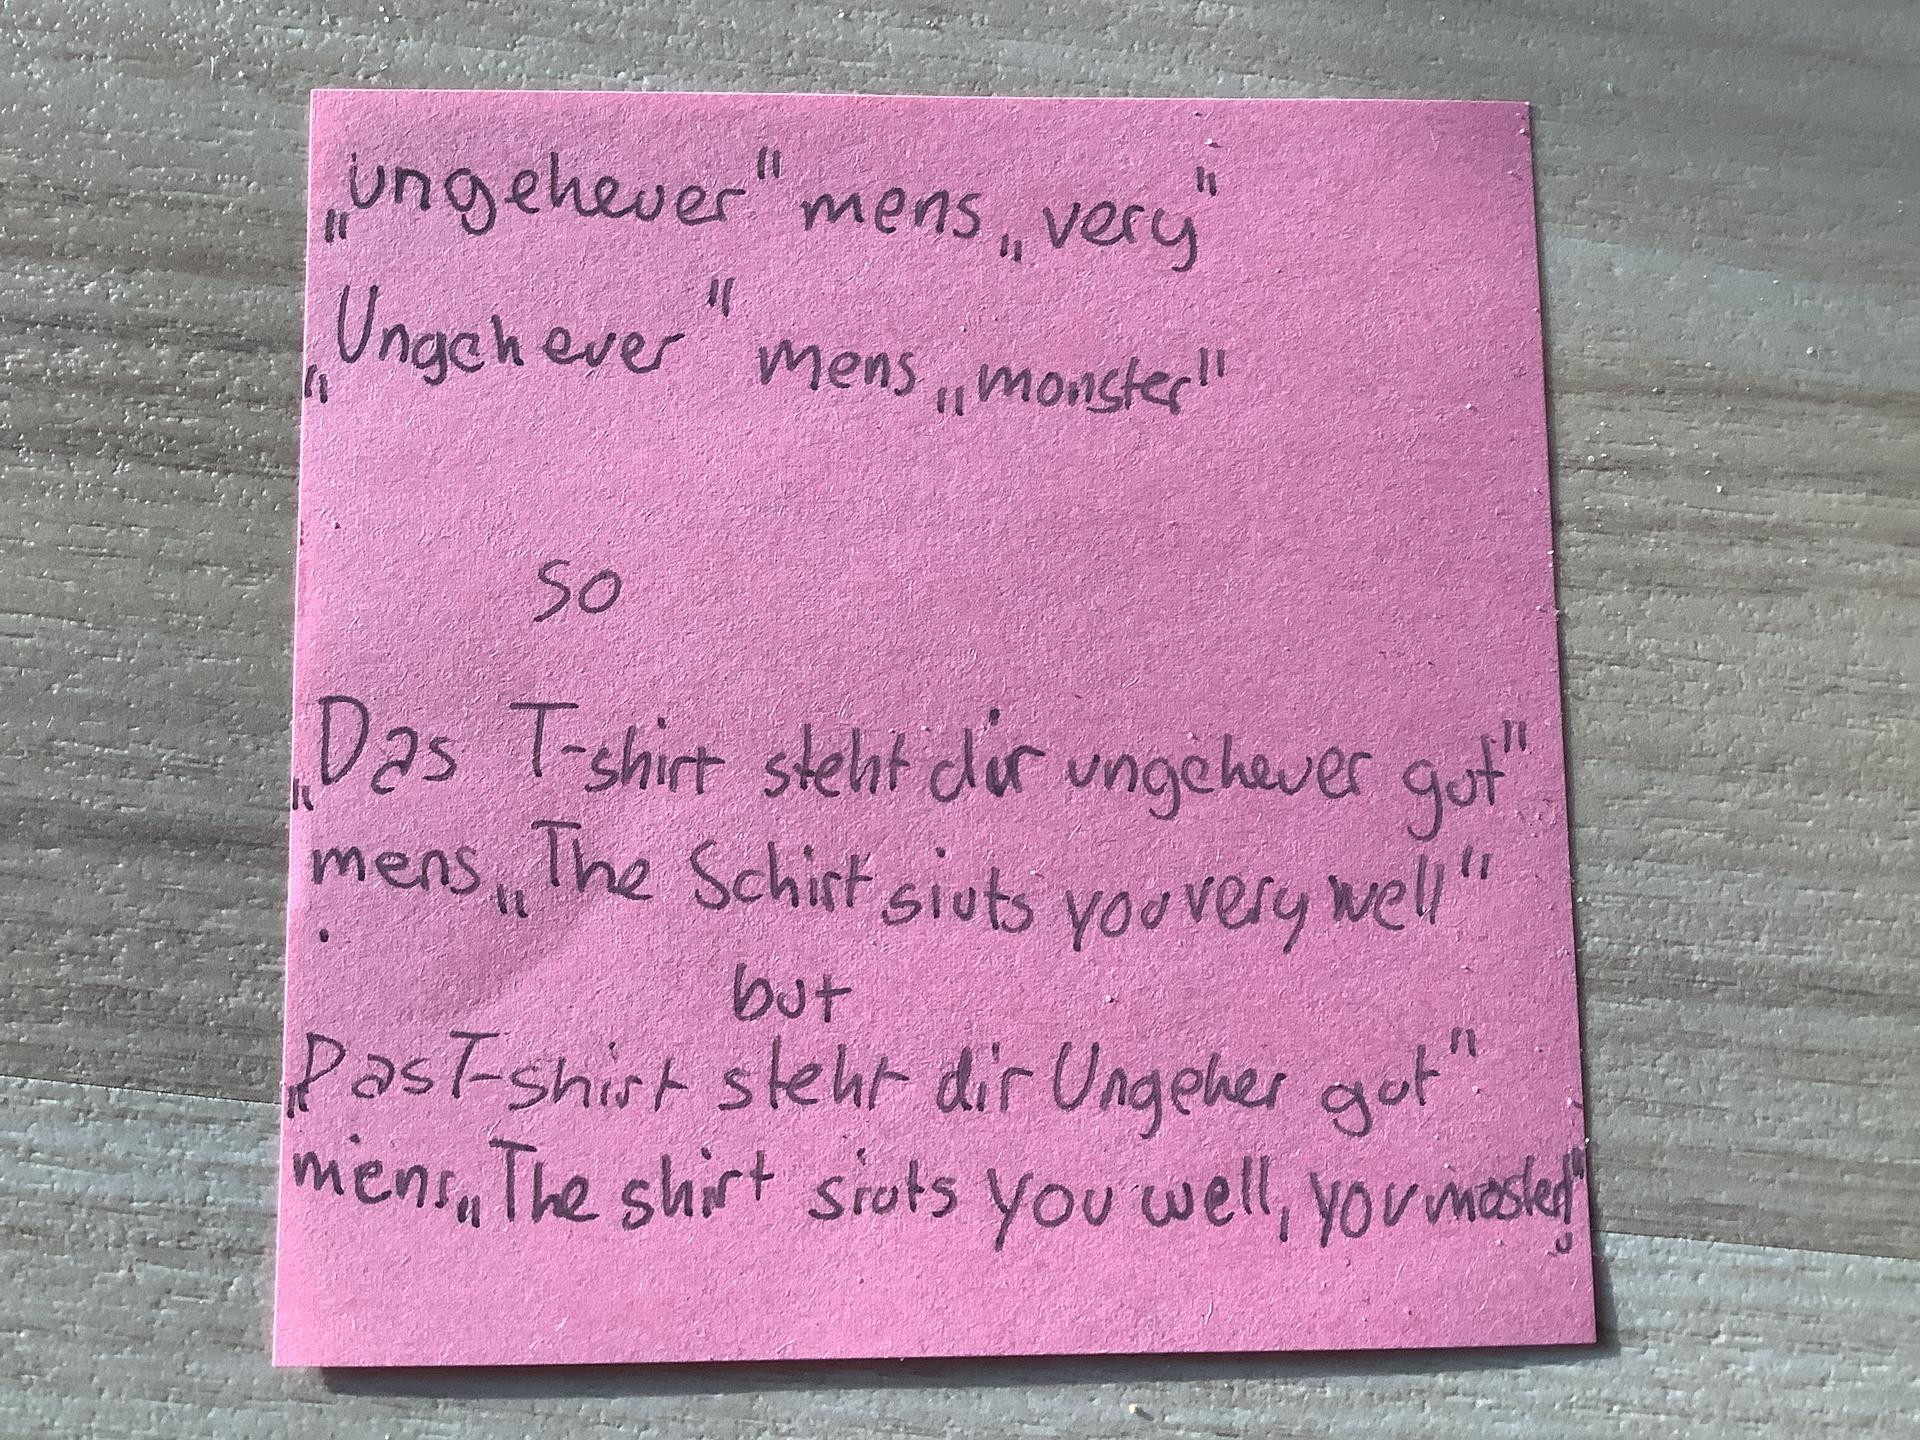 „ungeheuer" mens „very"
„Ungeheuer" mens „monster"
so
„Das T-shirt steht dir ungeheuer gut"
mens „The Schirt siuts you very well"
but
„Das T-shirt steht dir Ungeher gut"
mens „The shirt siuts you well, you moster!"